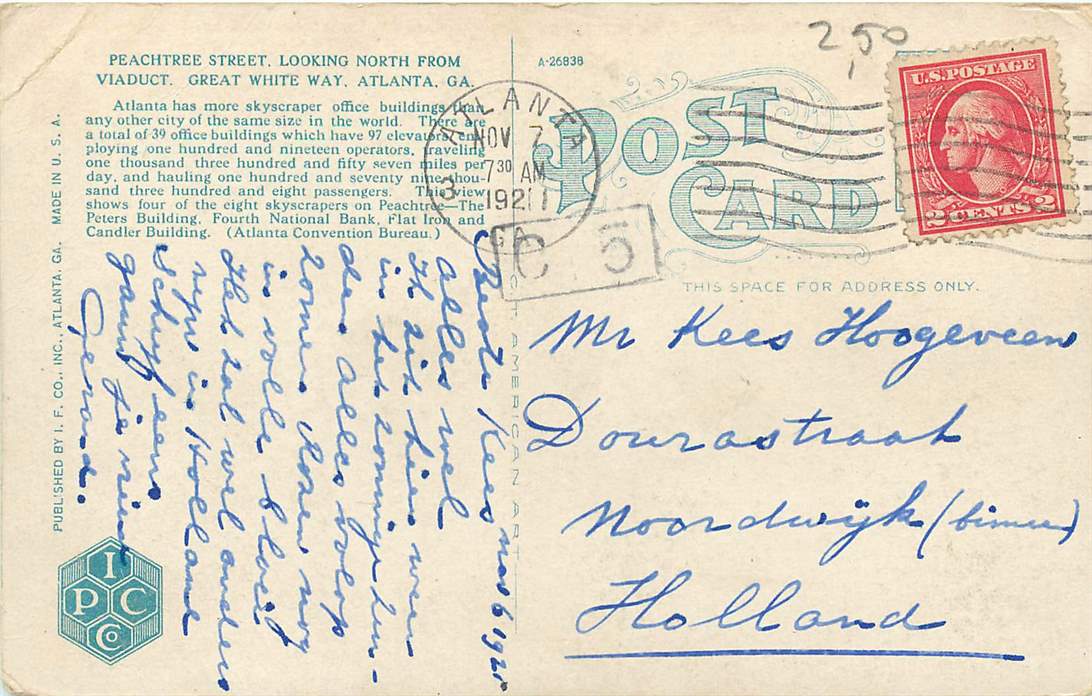 PEACHTREE STREET, LOOKING NORTH FROM
VIADUCT. GREAT WHITE WAY, ATLANTA, GA.
Atlanta has more skyscraper office buildings than
any other city of the same size in the world. There are
a total of 39 office buildings which have 97 elevators, em
ploying one hundred and nineteen operators, traveling
one thousand three hundred and fifty seven miles per
day, and hauling one hundred and seventy nine thou-
sand three hundred and eight passengers. This view
shows four of the eight skyscrapers on Peachtree—The
Peters Building, Fourth National Bank, Flat Iron and
Candler Building. (Atlanta Convention Bureau.)
PUBLISHED BY I. F. CO., INC., ATLANTA, GA. MADE IN U. S. A.
Beste Kees nov 6 1921
alles wel
Ik zit hier weer
in het zonnige
den alles volop
zomer rozen nog
in volle bloei
Het zal wel anders
zijn in Holland
Schrijf eens
gauw je vriend
Gerard.
I
P C
Co
A-26838
POST
CARD
C.T. AMERICAN ART
ATLANTA
GA.
3
NOV 7
7 30 AM
1921
C 5
2,50
U.S. POSTAGE
2 CENTS 2
THIS SPACE FOR ADDRESS ONLY.
Mr Kees Hoogeveen
Dourastraat
Noordwijk (binnen)
Holland